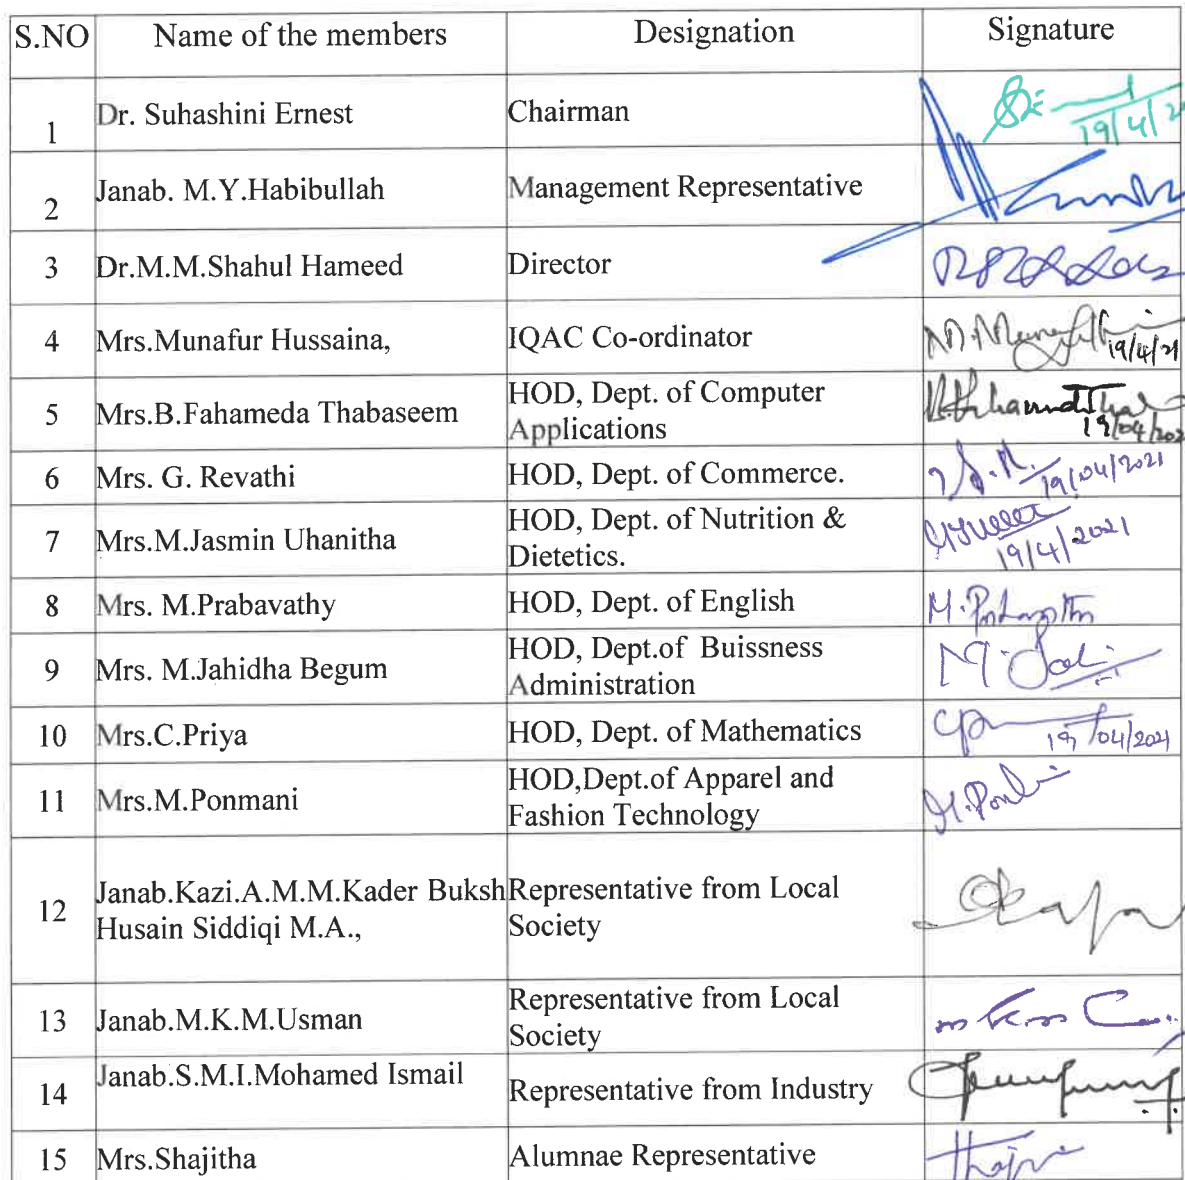 S.NO Name of the members Designation Signature
1 Dr. Suhashini Ernest Chairman 19/4/2
2 Janab. M.Y.Habibullah Management Representative
3 Dr.M.M.Shahul Hameed Director
4 Mrs.Munafur Hussaina, IQAC Co-ordinator 19/4/21
5 Mrs.B.Fahameda Thabaseem HOD, Dept. of Computer
Applications 19/04/202
6 Mrs. G. Revathi HOD, Dept. of Commerce. 19/04/2021
7 Mrs.M.Jasmin Uhanitha HOD, Dept. of Nutrition &
Dietetics. 19/4/2021
8 Mrs. M.Prabavathy HOD, Dept. of English
9 Mrs. M.Jahidha Begum HOD, Dept.of Buissness
Administration
10 Mrs.C.Priya HOD, Dept. of Mathematics 19/04/2021
11 Mrs.M.Ponmani HOD,Dept.of Apparel and
Fashion Technology
12 Janab.Kazi.A.M.M.Kader Buksh Representative from Local
Husain Siddiqi M.A., Society
13 Janab.M.K.M.Usman Representative from Local
Society
14 Janab.S.M.I.Mohamed Ismail Representative from Industry
15 Mrs.Shajitha Alumnae Representative